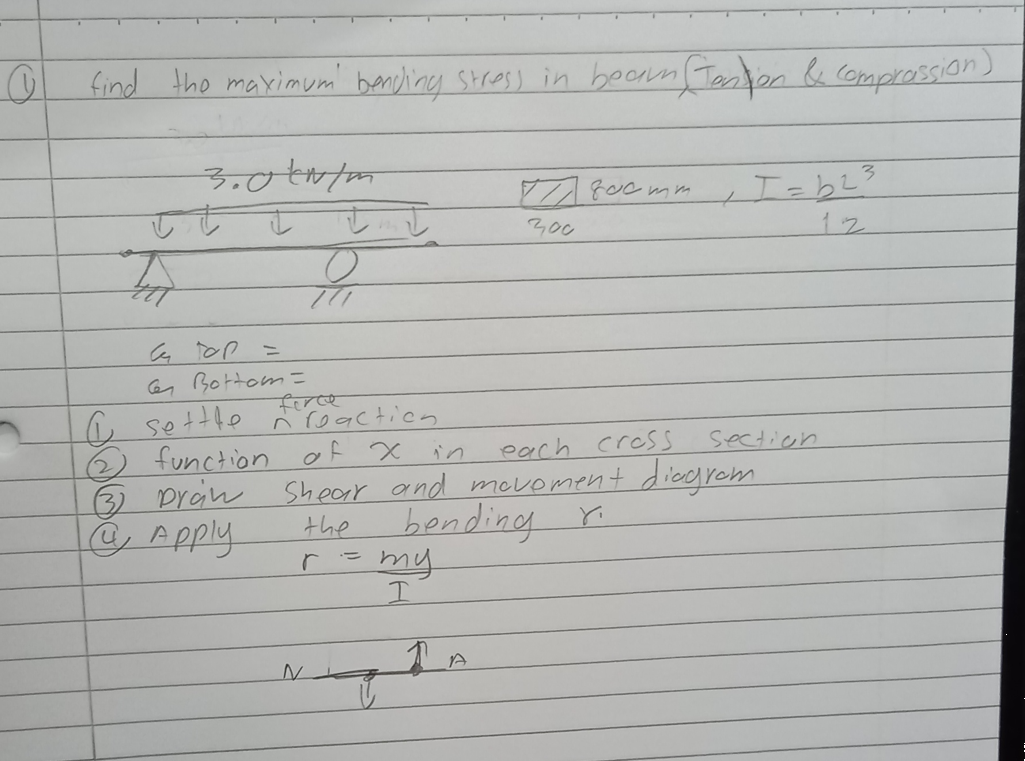 ① find tho maximum bending stress in beam (Tension & compression)
3.0 kN/m
800mm , I = bL³
300
12
G Top =
G Bottom =
force
① settle ^ reaction
② function of x in each cross section
③ Draw shear and movement diagram
④ Apply the bending r.
r = my
I
N A